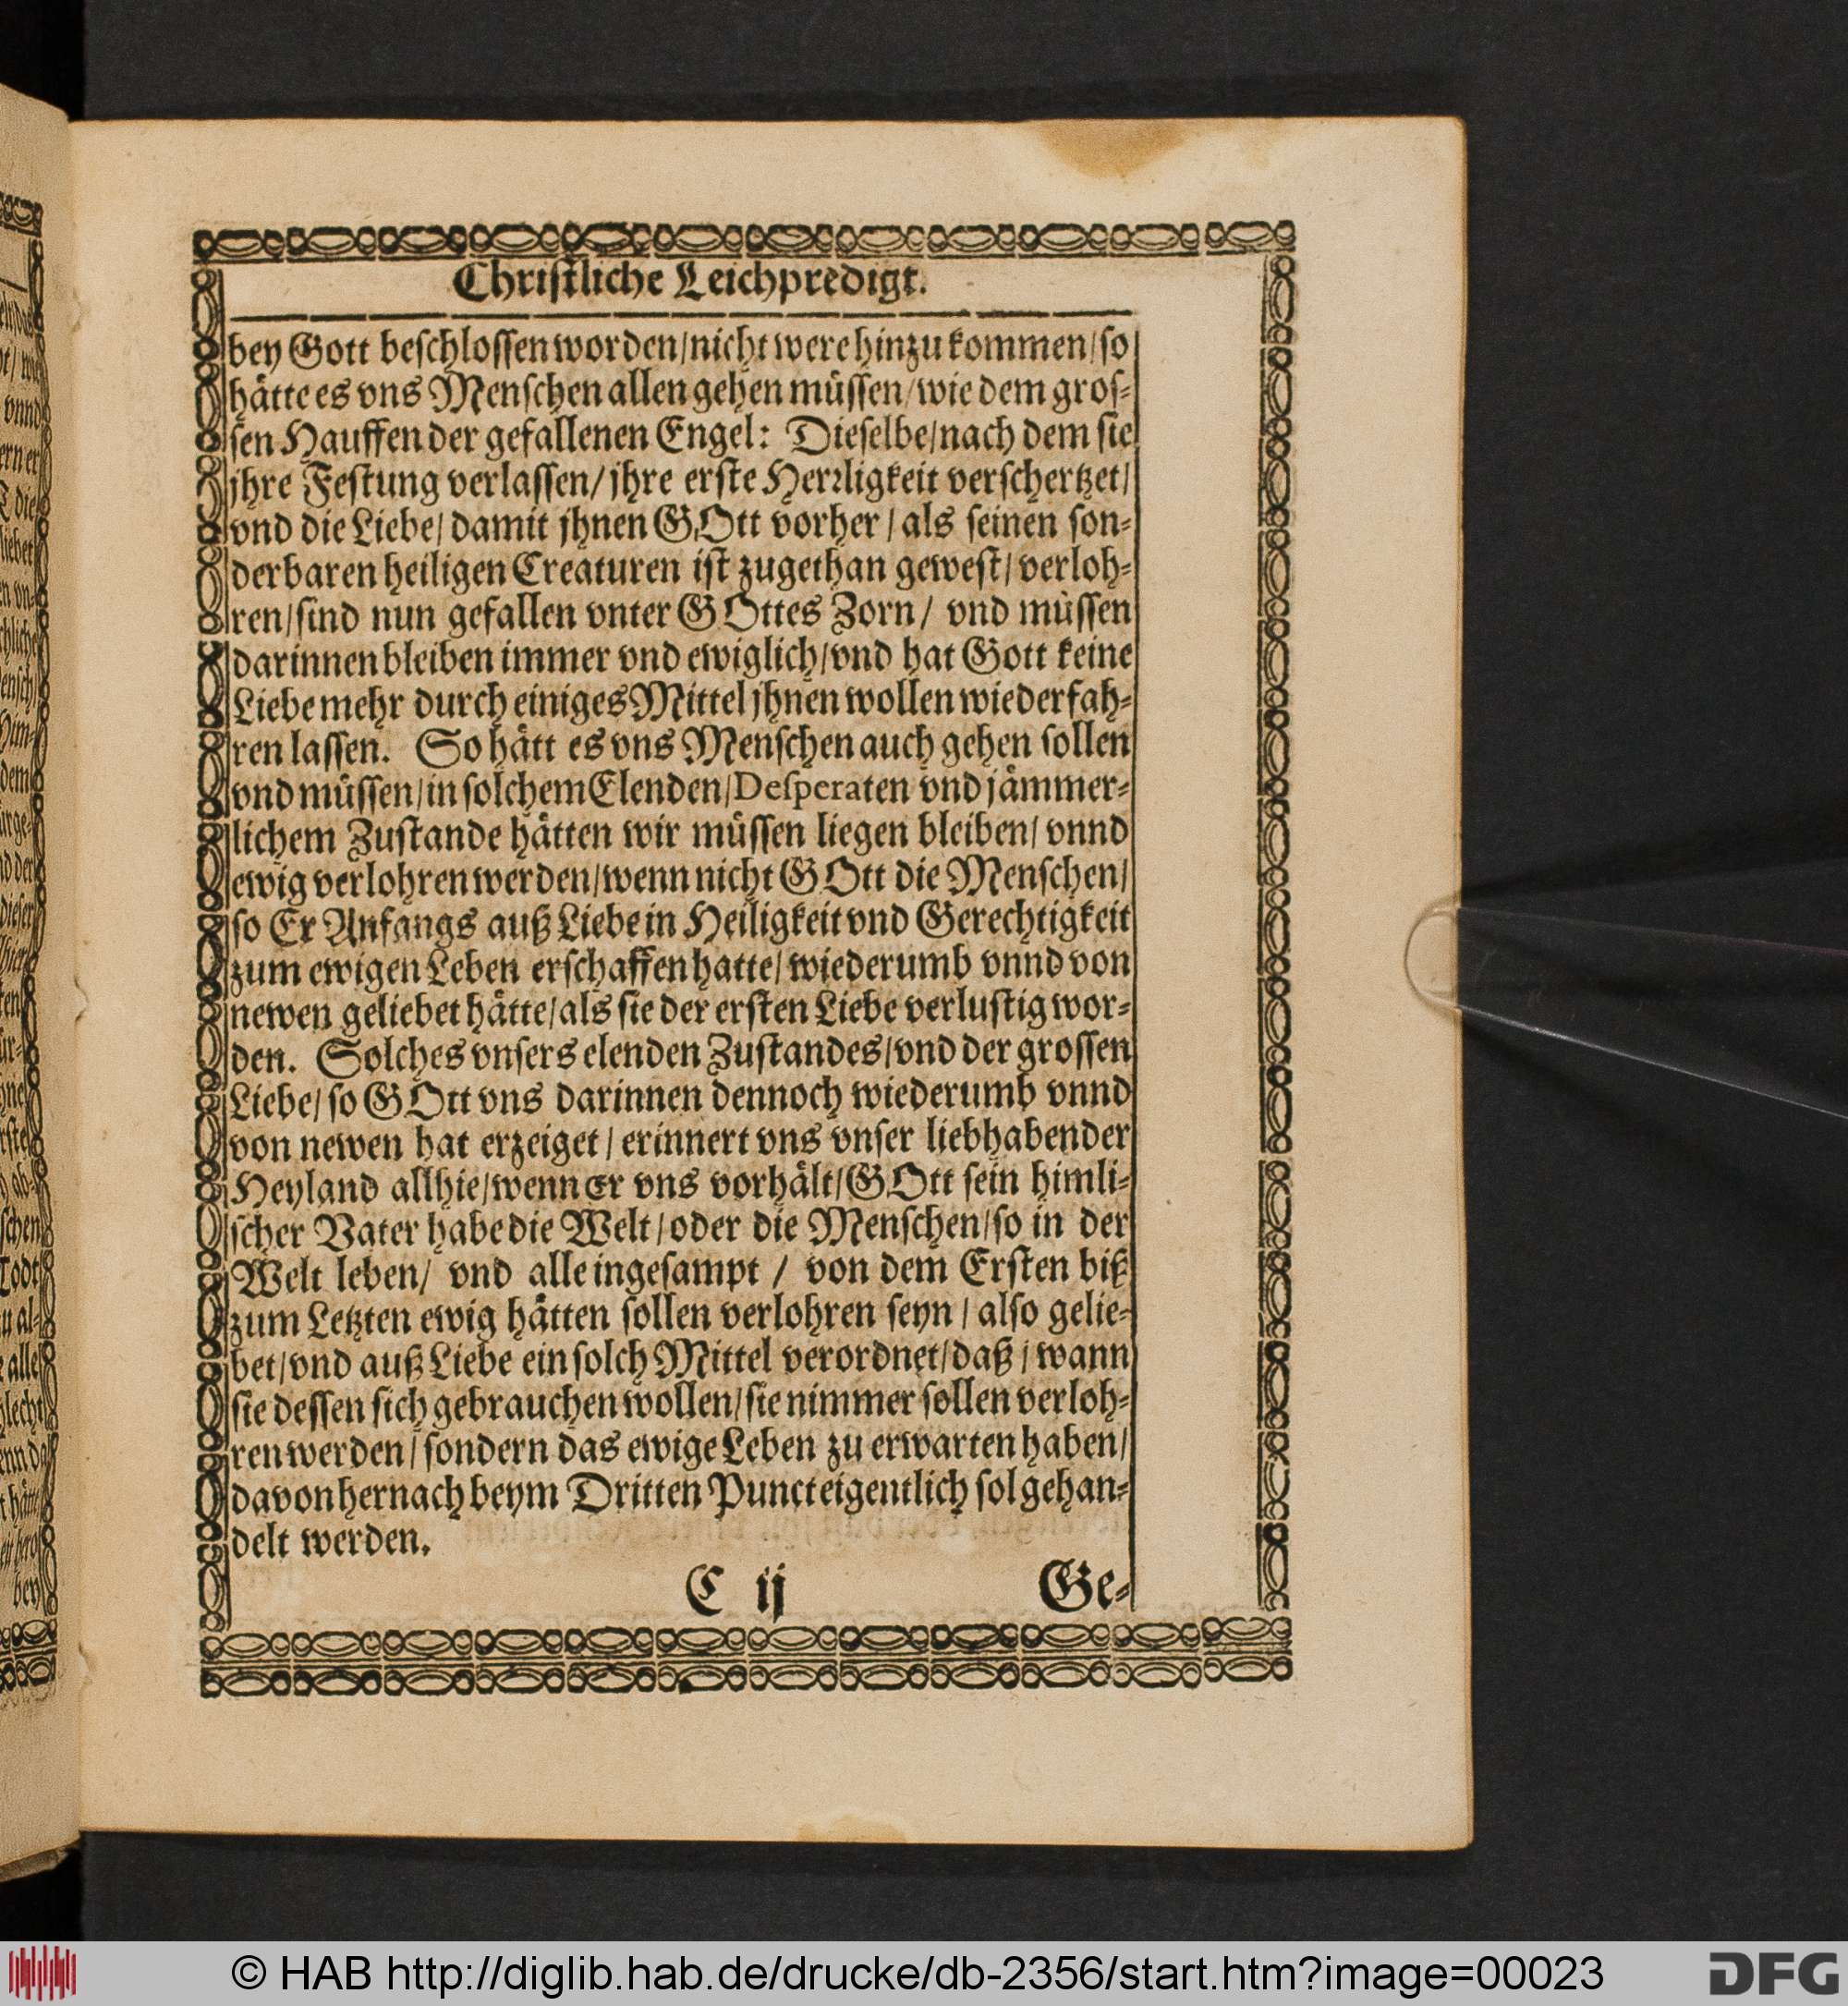 Christliche Leichpredigt.
bey Gott beschlossen worden/nicht were hinzu kommen/so
hätte es vns Menschen allen gehen müssen/wie dem gros-
sen Hauffen der gefallenen Engel: Dieselbe/nach dem sie
jhre Festung verlassen/ jhre erste Herrligkeit verschertzet/
vnd die Liebe/ damit jhnen GOtt vorher / als seinen son-
derbaren heiligen Creaturen ist zugethan gewest/ verloh-
ren/sind nun gefallen vnter GOttes Zorn/ vnd müssen
darinnen bleiben immer vnd ewiglich/vnd hat Gott keine
Liebe mehr durch einiges Mittel jhnen wollen wiederfah-
ren lassen. So hätt es vns Menschen auch gehen sollen
vnd müssen/in solchem Elenden/Desperaten vnd jämmer-
lichem Zustande hätten wir müssen liegen bleiben/ vnnd
ewig verlohren werden/wenn nicht GOtt die Menschen/
so Er Anfangs auß Liebe in Heiligkeit vnd Gerechtigkeit
zum ewigen Leben erschaffen hatte/ wiederumb vnnd von
newen geliebet hätte/als sie der ersten Liebe verlustig wor-
den. Solches vnsers elenden Zustandes/vnd der grossen
Liebe/ so GOtt vns darinnen dennoch wiederumb vnnd
von newen hat erzeiget/ erinnert vns vnser liebhabender
Heyland allhie/wenn er vns vorhält/GOtt sein himli-
scher Vater habe die Welt/oder die Menschen/so in der
Welt leben/ vnd alle ingesampt / von dem Ersten biß
zum Letzten ewig hätten sollen verlohren seyn / also gelie-
bet/vnd auß Liebe ein solch Mittel verordnet/daß / wann
sie dessen sich gebrauchen wollen/sie nimmer sollen verloh-
ren werden/ sondern das ewige Leben zu erwarten haben/
davon hernach beym Dritten Punct eigentlich sol gehan-
delt werden.
C ij Ge-
© HAB http://diglib.hab.de/drucke/db-2356/start.htm?image=00023
DFG